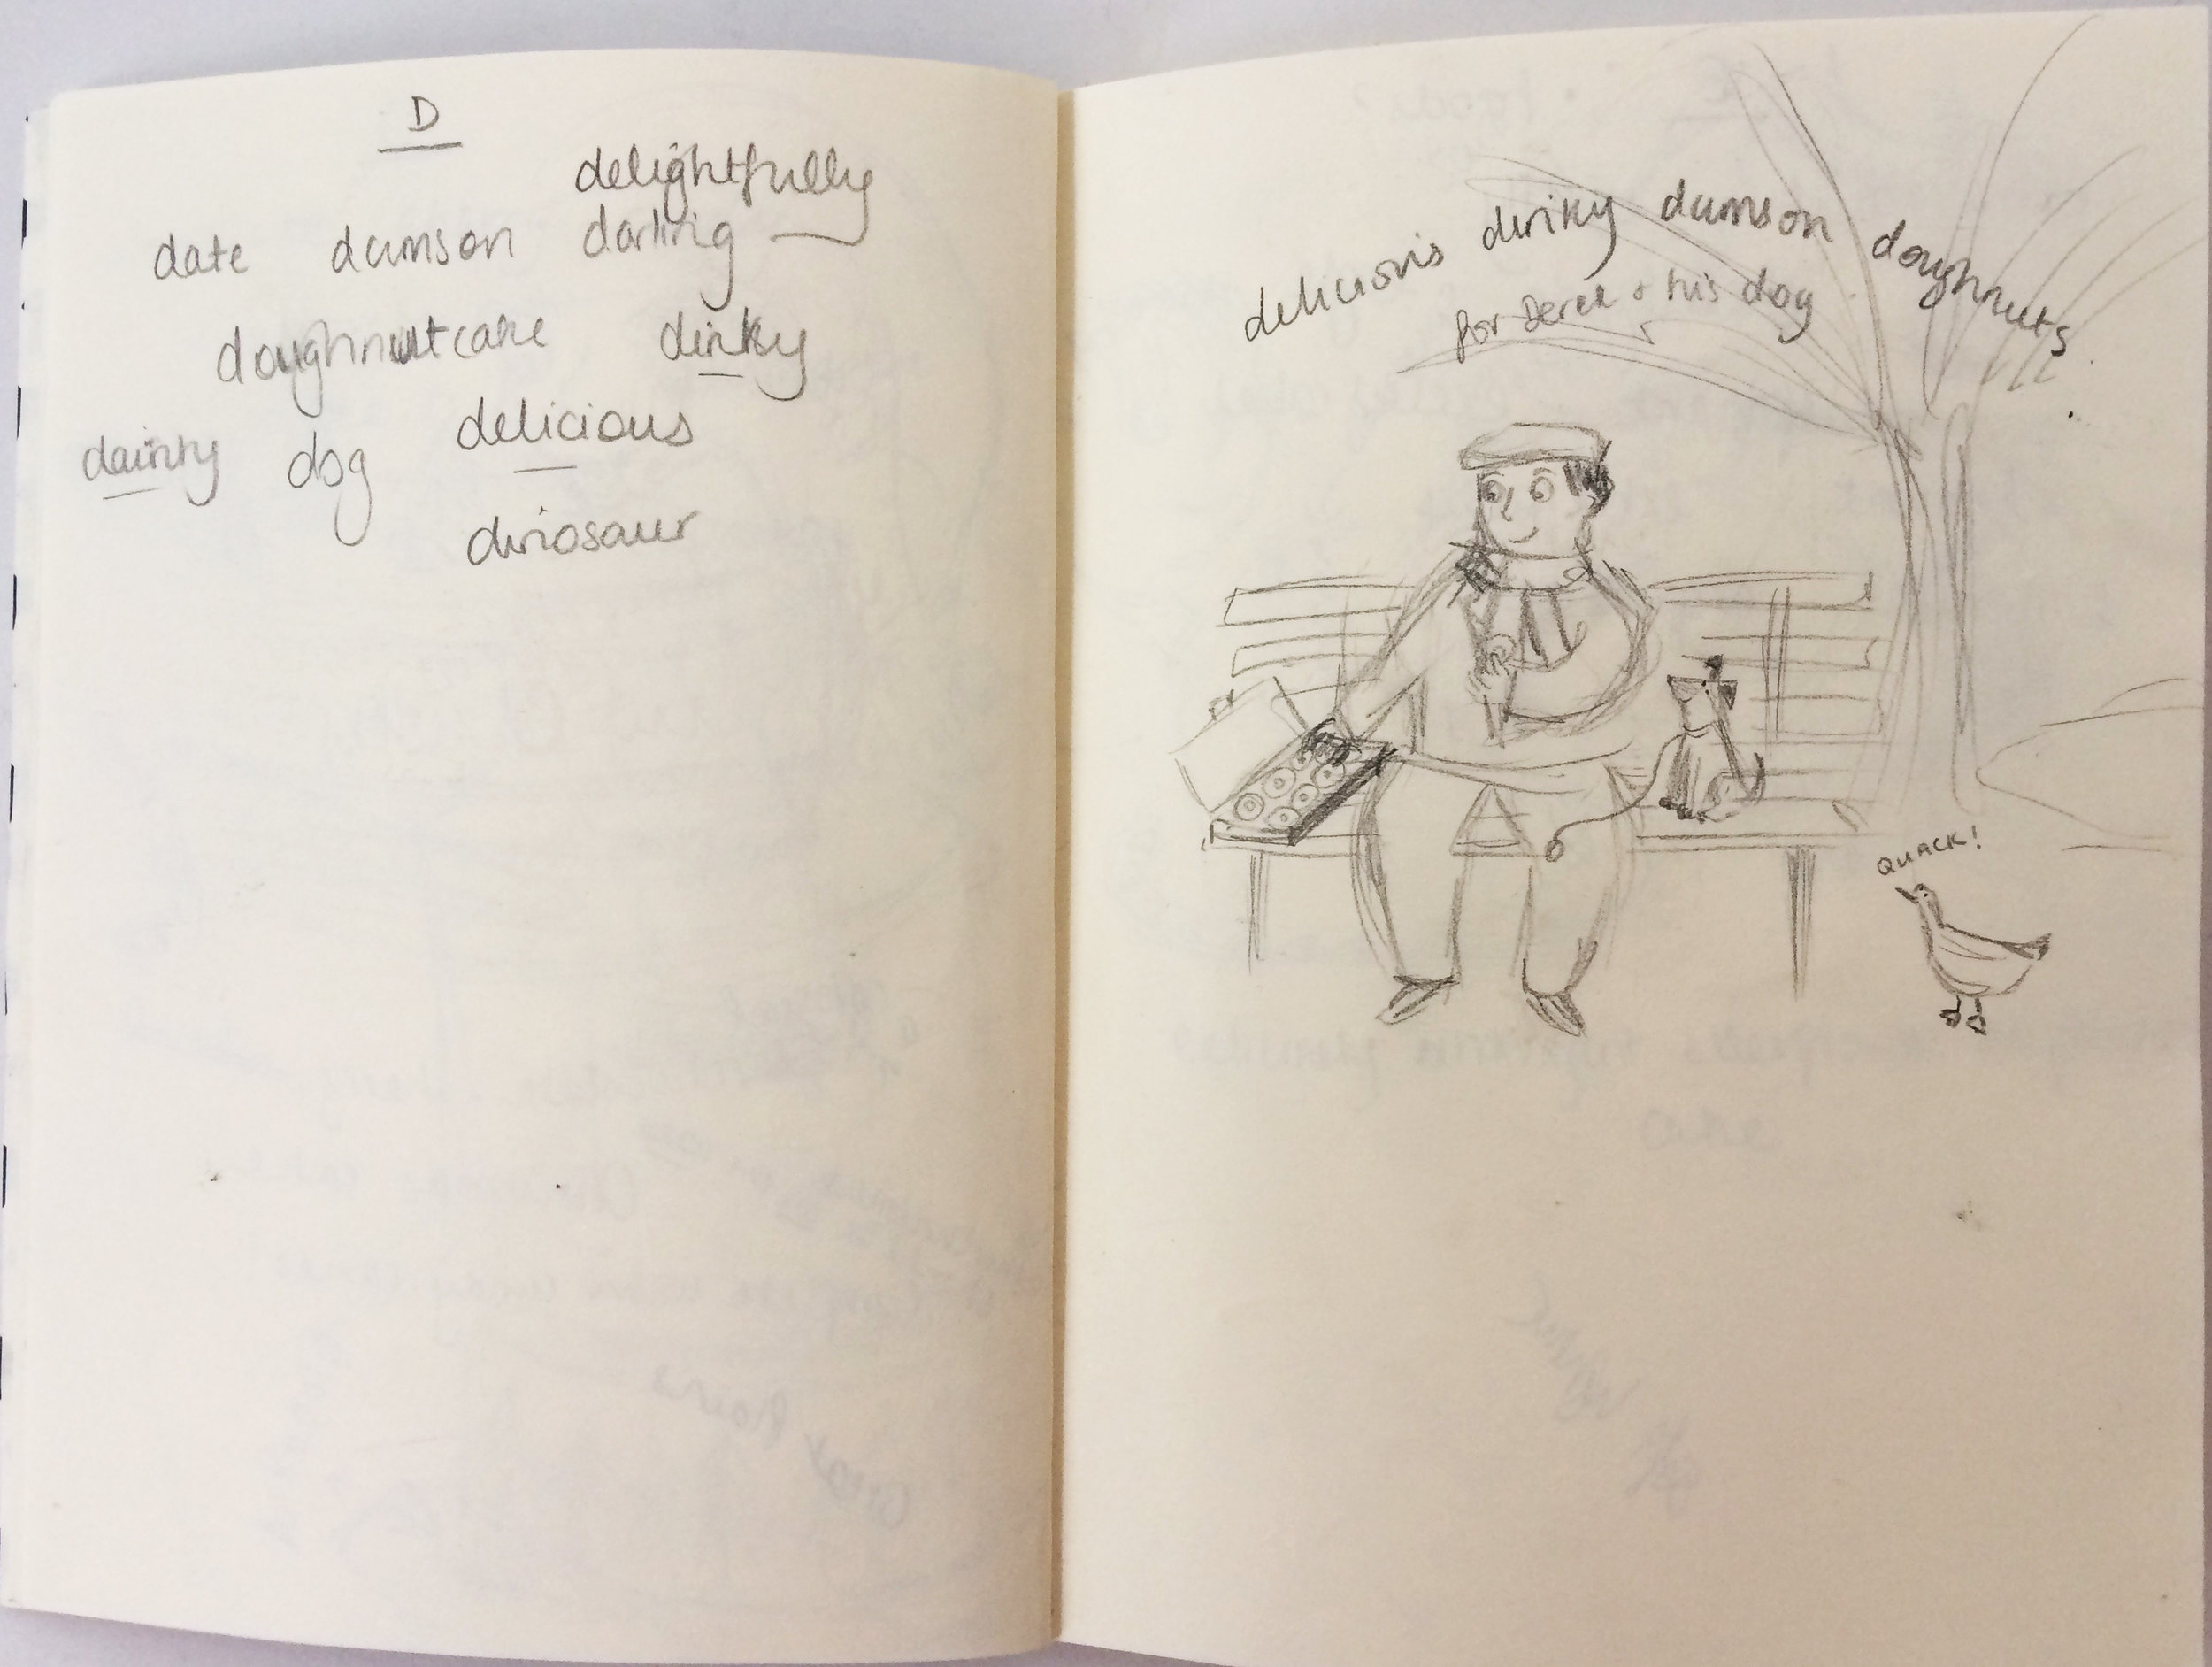 D
delightfully
date damson darling
doughnutcake dinky
dainty dog delicious
dinosaur
delicious dinky damson doughnuts
for Derek + his dog
QUACK!